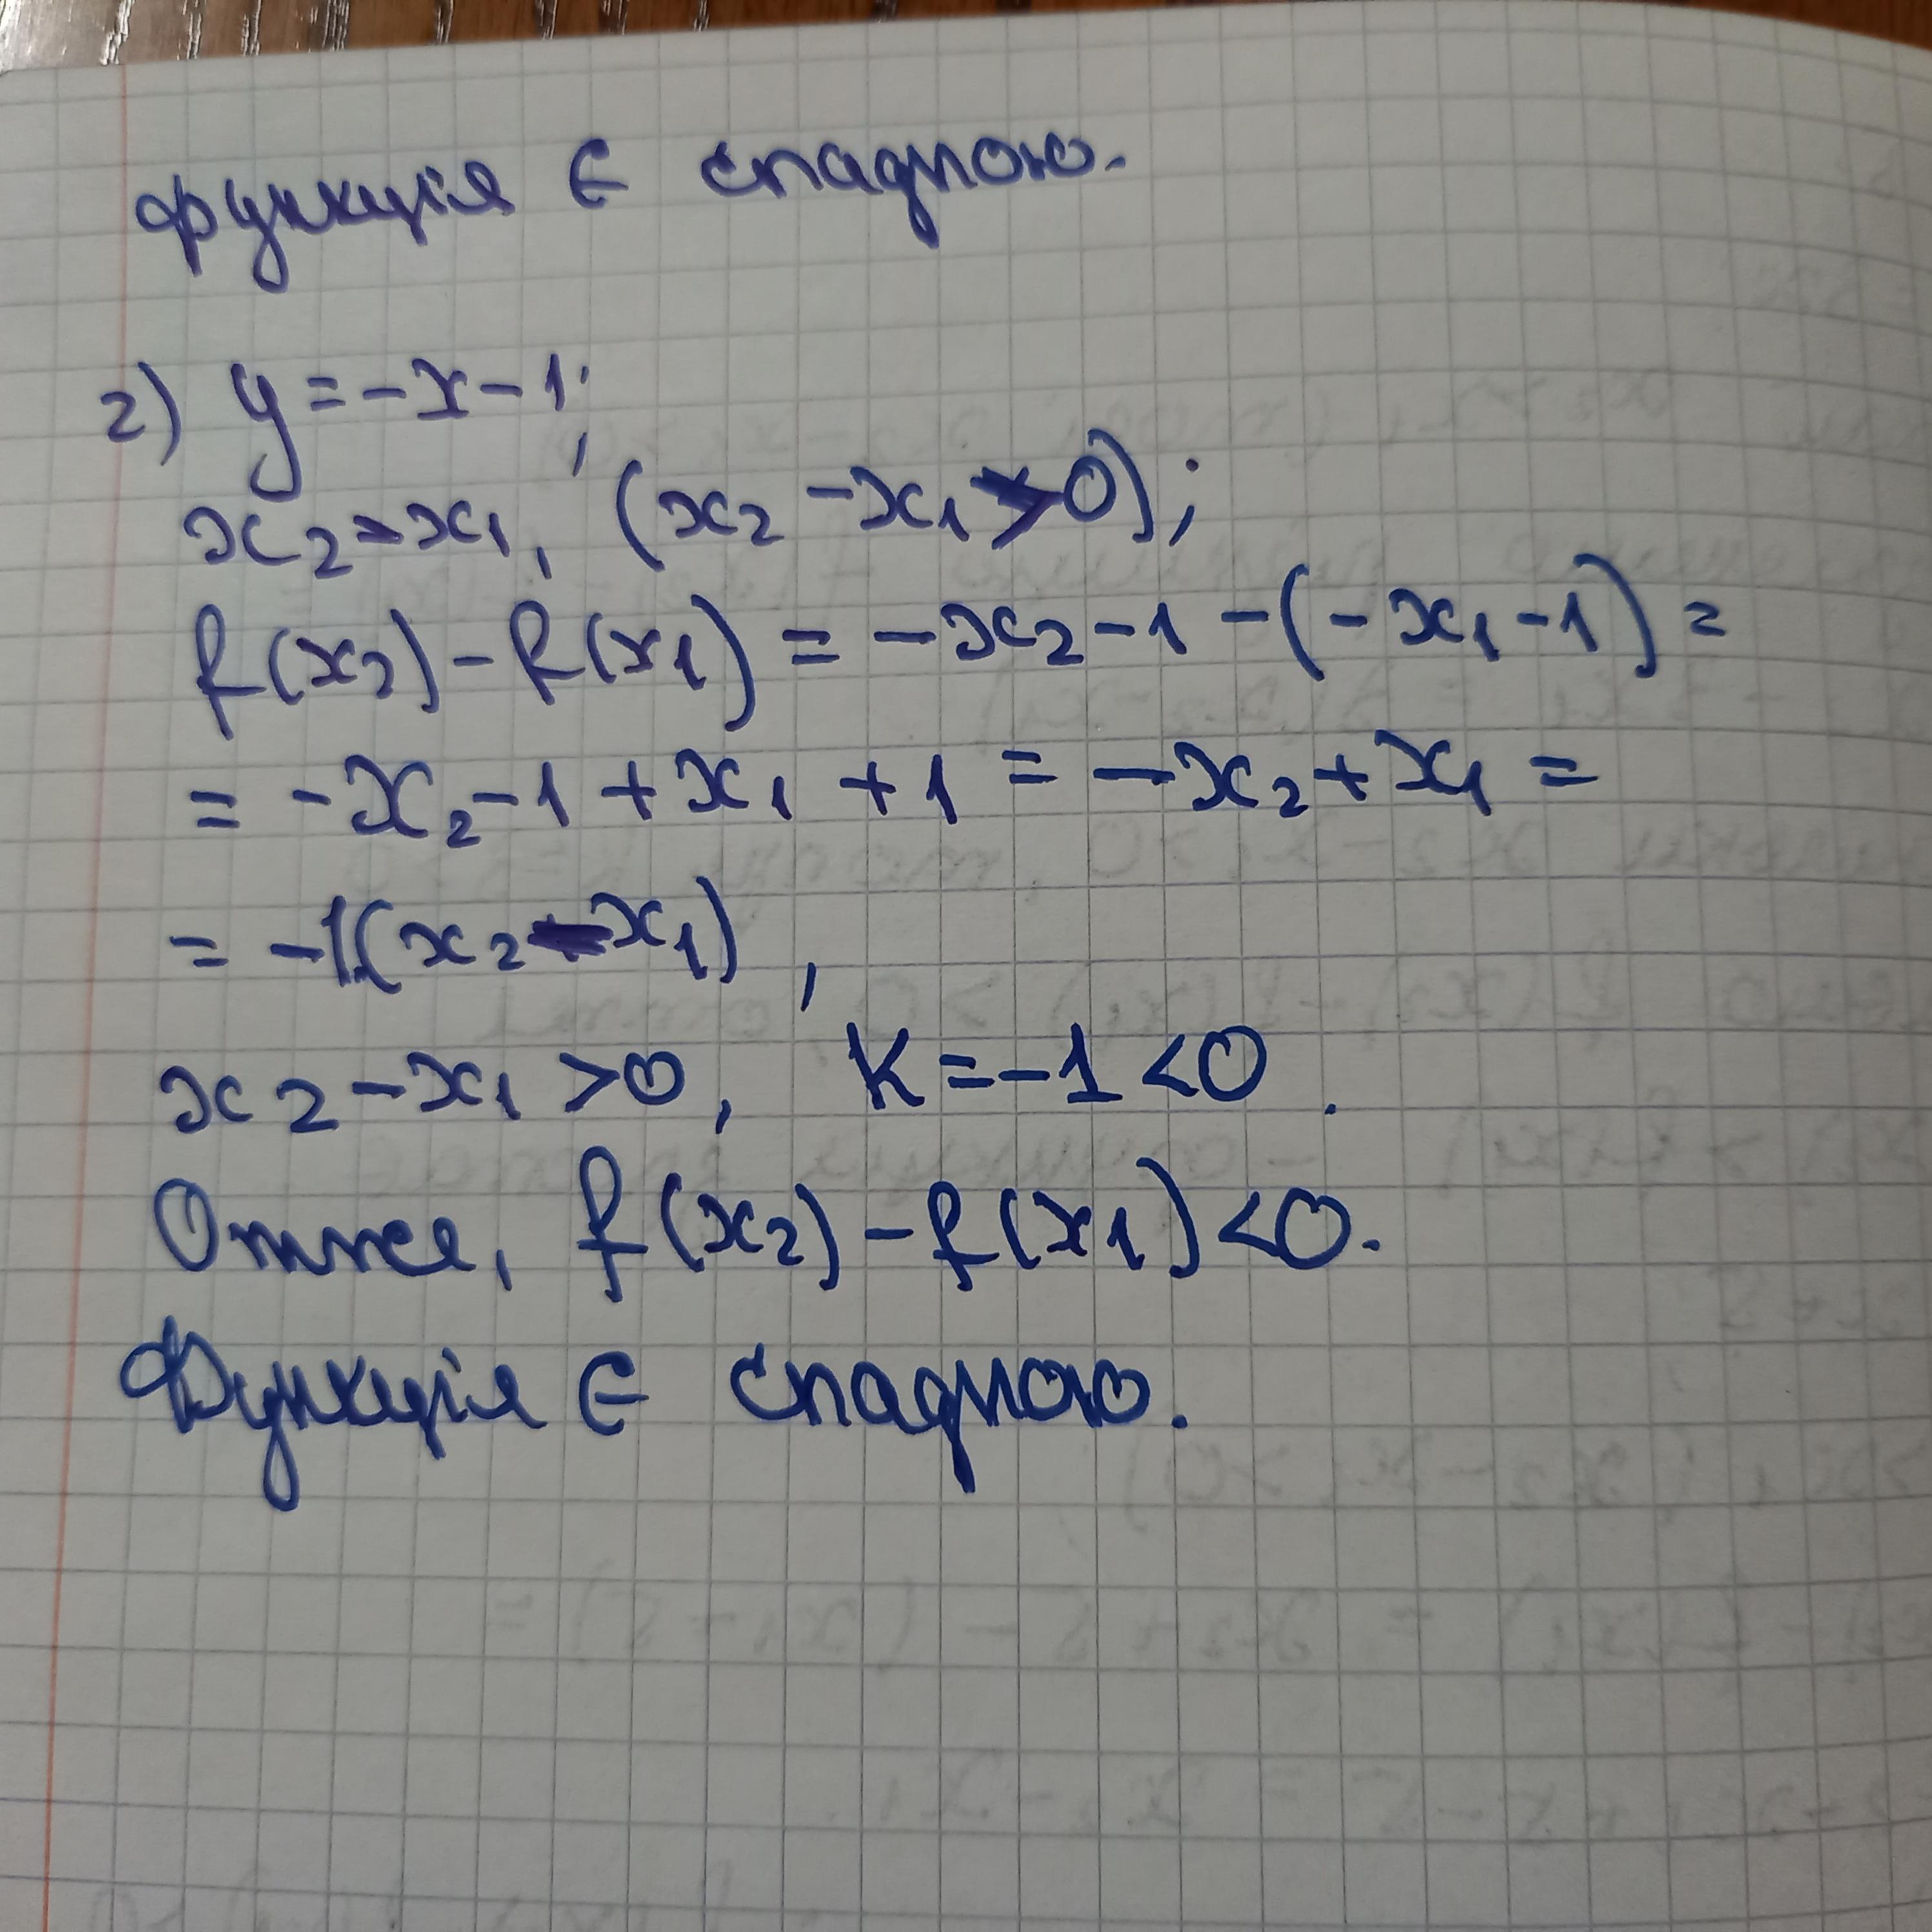 функція є спадною.
2) y = -x - 1;
x₂ > x₁, (x₂ - x₁ > 0);
f(x₂) - f(x₁) = -x₂ - 1 - (-x₁ - 1) =
= -x₂ - 1 + x₁ + 1 = -x₂ + x₁ =
= -1(x₂ - x₁),
x₂ - x₁ > 0, K = -1 < 0.
Отже, f(x₂) - f(x₁) < 0.
Функція є спадною.